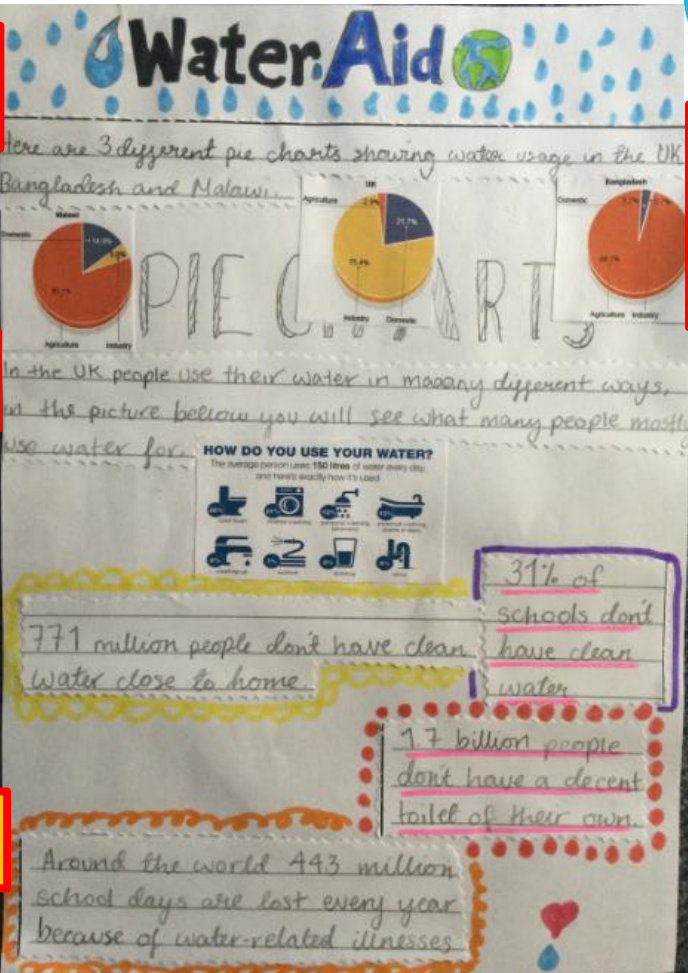 Water Aid
Here are 3 different pie charts showing water usage in the UK
Bangladesh and Malawi.
Malawi
Domestic
14.9%
Agriculture
Industry
UK
Agriculture
2.9%
21.7%
75.4%
Industry
Domestic
Bangladesh
Domestic
Agriculture
Industry
PIE CHARTS
In the UK people use their water in maaany different ways,
in the picture bellow you will see what many people mostly
use water for.
HOW DO YOU USE YOUR WATER?
The average person uses 150 litres of water every day,
and here's exactly how it's used
31% of
schools don't
have clean
water
771 million people don't have clean
water close to home.
1.7 billion people
don't have a decent
toilet of their own.
Around the world 443 million
school days are lost every year
because of water-related illnesses